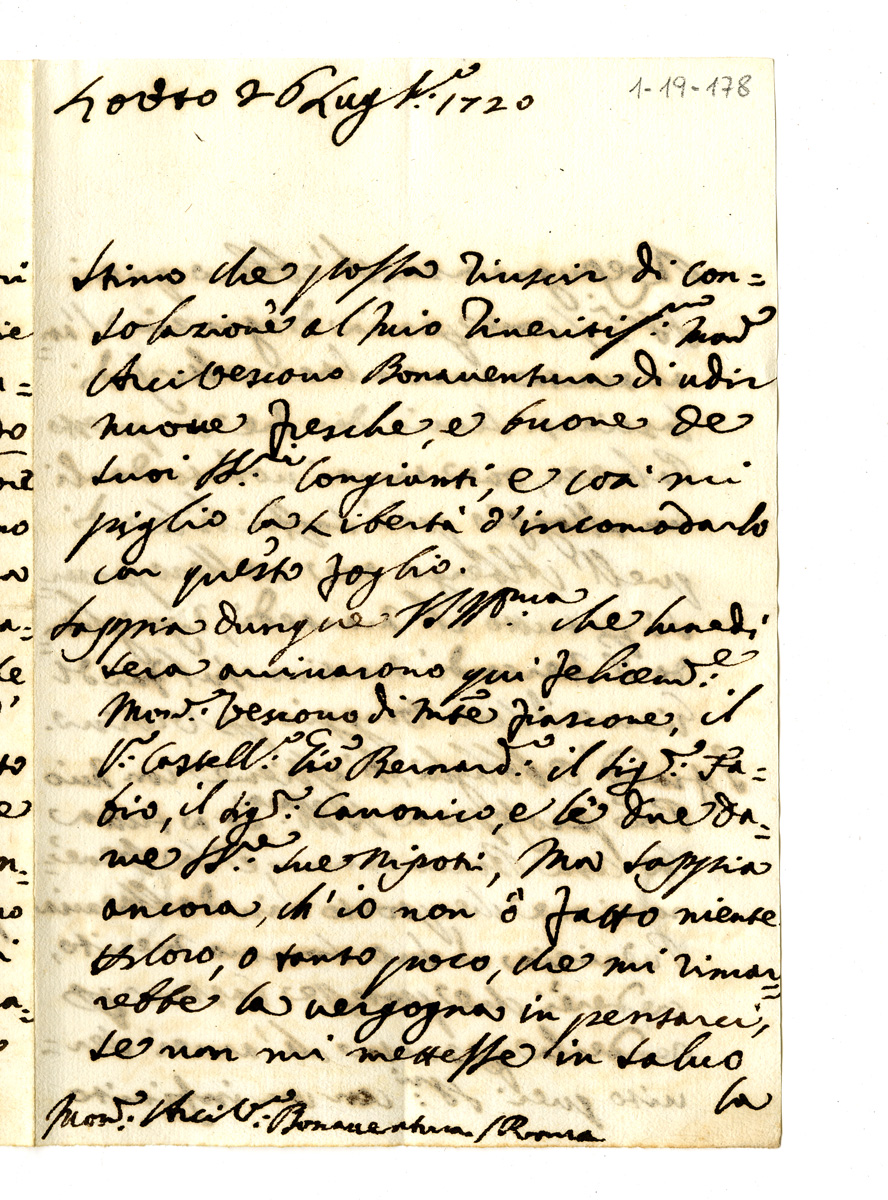 1-19-178
Loreto 26 Lugl.º 1720
Stimo che possa riuscir di con=
solazione al mio riveritiss.mo Mons.
Arcivescovo Bonaventura di udir
nuove fresche, e buone de
suoi SS.ri Congiunti, e così mi
piglio la libertà d'incomodarlo
con questo foglio.
Sappia dunque V.S. Ill.ma che lunedi
sera arrivarono qui felicem.e
Mons.r Vescovo di M.te Fiascone, il
S.r Castell.o Gio Bernard.o il Sig.r Fa=
bio, il Sig.r Canonico, e le due Da=
me SS.re sue Nipoti, Ma sappia
ancora, ch'io non ò fatto niente
p loro, o tanto poco, che mi rimar=
rebbe la vergogna in pensarci,
se non mi mettesse in salvo
la
Mons.r Arciv.o Bonaventura / Roma